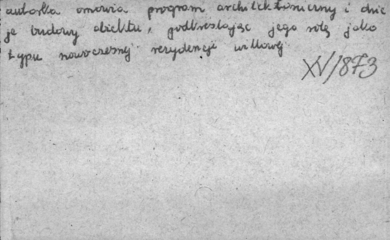 autorka omawia program architektoniczny i dzie
je budowy obiektu, podkreślając jego rolę jako
typu nowoczesnej rezydencji willowej
XV/873